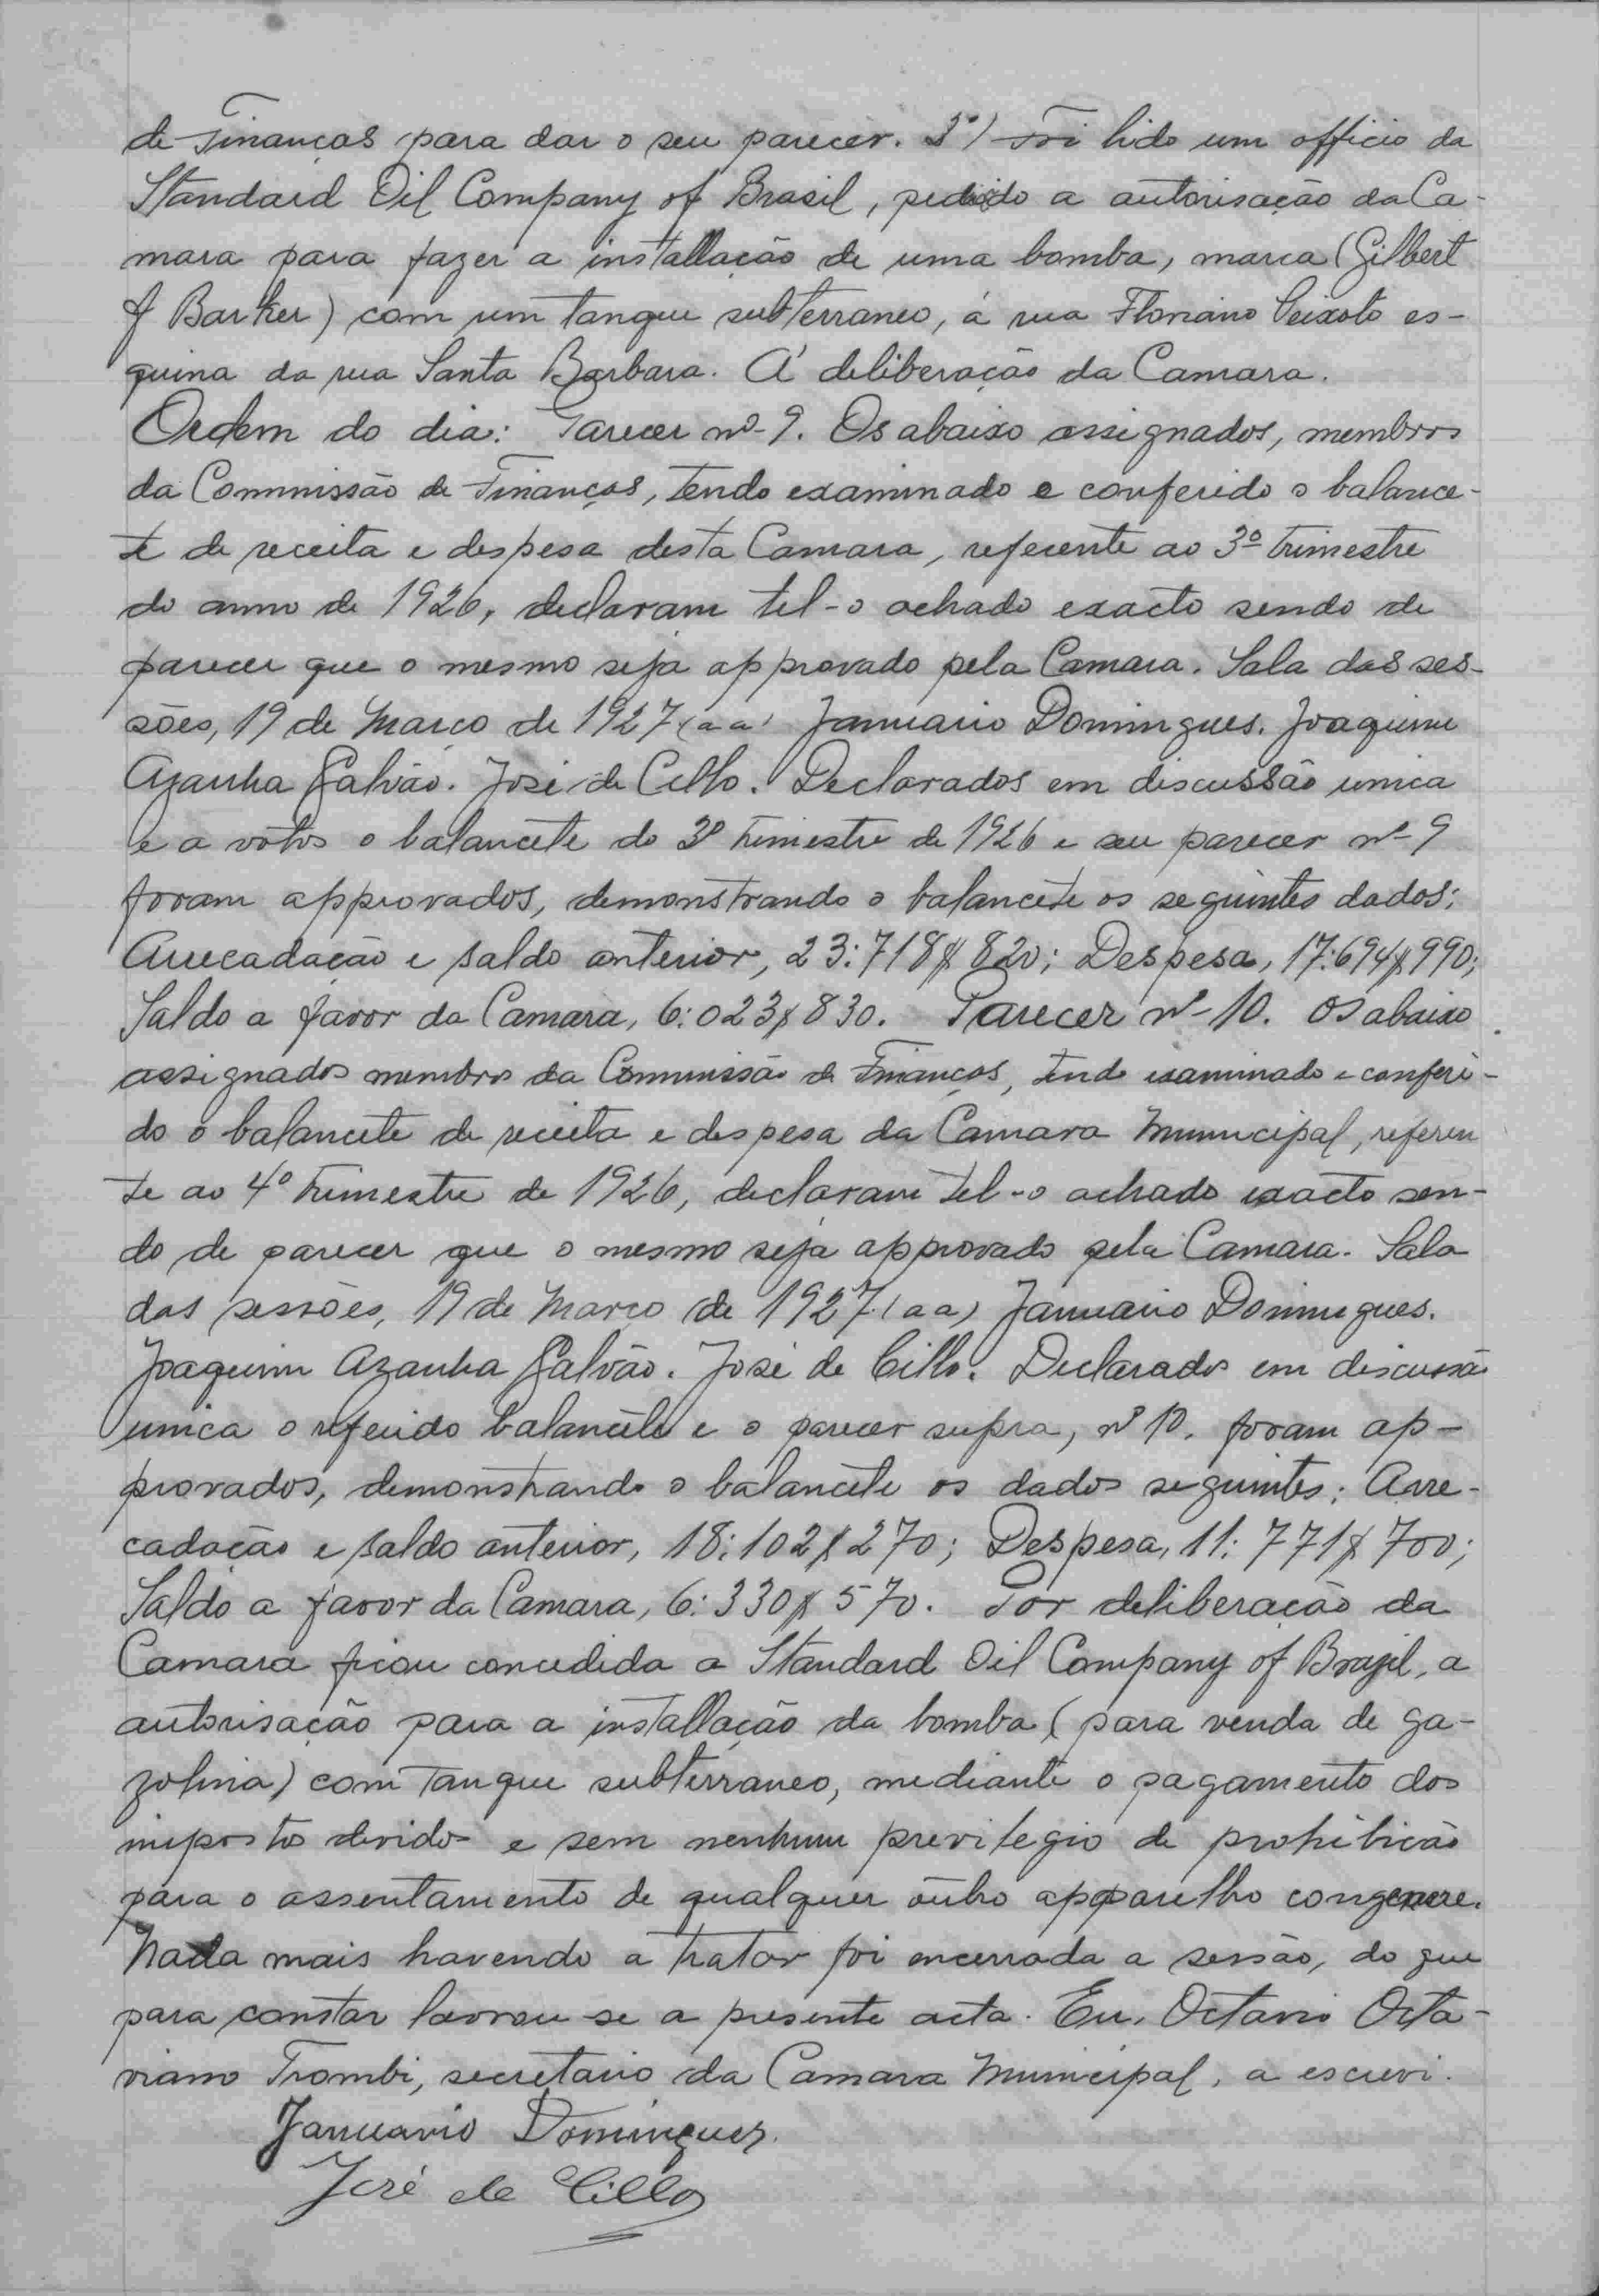 de Finanças para dar o seu parecer. 3º) Foi lido um officio da
Standard Oil Company of Brasil, pedido a autorisação da Ca-
mara para fazer a installação de uma bomba, marca (Gilbert
& Barker) com um tanque subterraneo, á rua Floriano Peixoto es-
quina da rua Santa Barbara. Á deliberação da Camara.
Ordem do dia: Parecer nº 9. Os abaixo assignados, membros
da Commissão de Finanças, tendo examinado e conferido o balance-
te de receita e despesa desta Camara, referente ao 3º trimestre
do anno de 1926, declaram tel-o achado exacto sendo de
parecer que o mesmo seja approvado pela Camara. Sala das ses-
sões, 19 de Março de 1927 (a a) Januario Domingues. Joaquim
Azanha Galvão. José de Cillo. Declarados em discussão unica
e a votos o balancête do 3º trimestre de 1926 e seu parecer nº 9
foram approvados, demonstrando o balancête os seguintes dados:
Arrecadação e saldo anterior, 23:718$820; Despesa, 17:694$990;
Saldo a favor da Camara, 6:023$830. Parecer nº 10. Os abaixo
assignados membros da Commissão de Finanças, tendo examinado e conferi-
do o balancete de receita e despesa da Camara Municipal, referen
te ao 4º trimestre de 1926, declaram tel-o achado exacto sen-
do de parecer que o mesmo seja approvado pela Camara. Sala
das sessões, 19 de Março de 1927. (a a) Januario Domingues.
Joaquim Azanha Galvão. José de Cillo. Declarados em discussão
unica o referido balancête e o parecer supra, nº 10, foram ap-
provados, demonstrando o balancête os dados seguintes: Arre-
cadação e saldo anterior, 18:102$270; Despesa, 11:771$700;
Saldo a favor da Camara, 6:330$570. Por deliberação da
Camara ficou concedida a Standard Oil Company of Brazil, a
autorisação para a installação da bomba (para venda de ga-
zolina) com tanque subterraneo, mediante o pagamento dos
impostos devidos e sem nenhum previlegio de prohibição
para o assentamento de qualquer outro apparelho congenere.
Nada mais havendo a tratar foi encerrada a sessão, do que
para constar lavrou-se a presente acta. Eu, Octavio Octa-
viano Trombi, secretario da Camara Municipal, a escrevi.
Januario Domingues.
José de Cillo